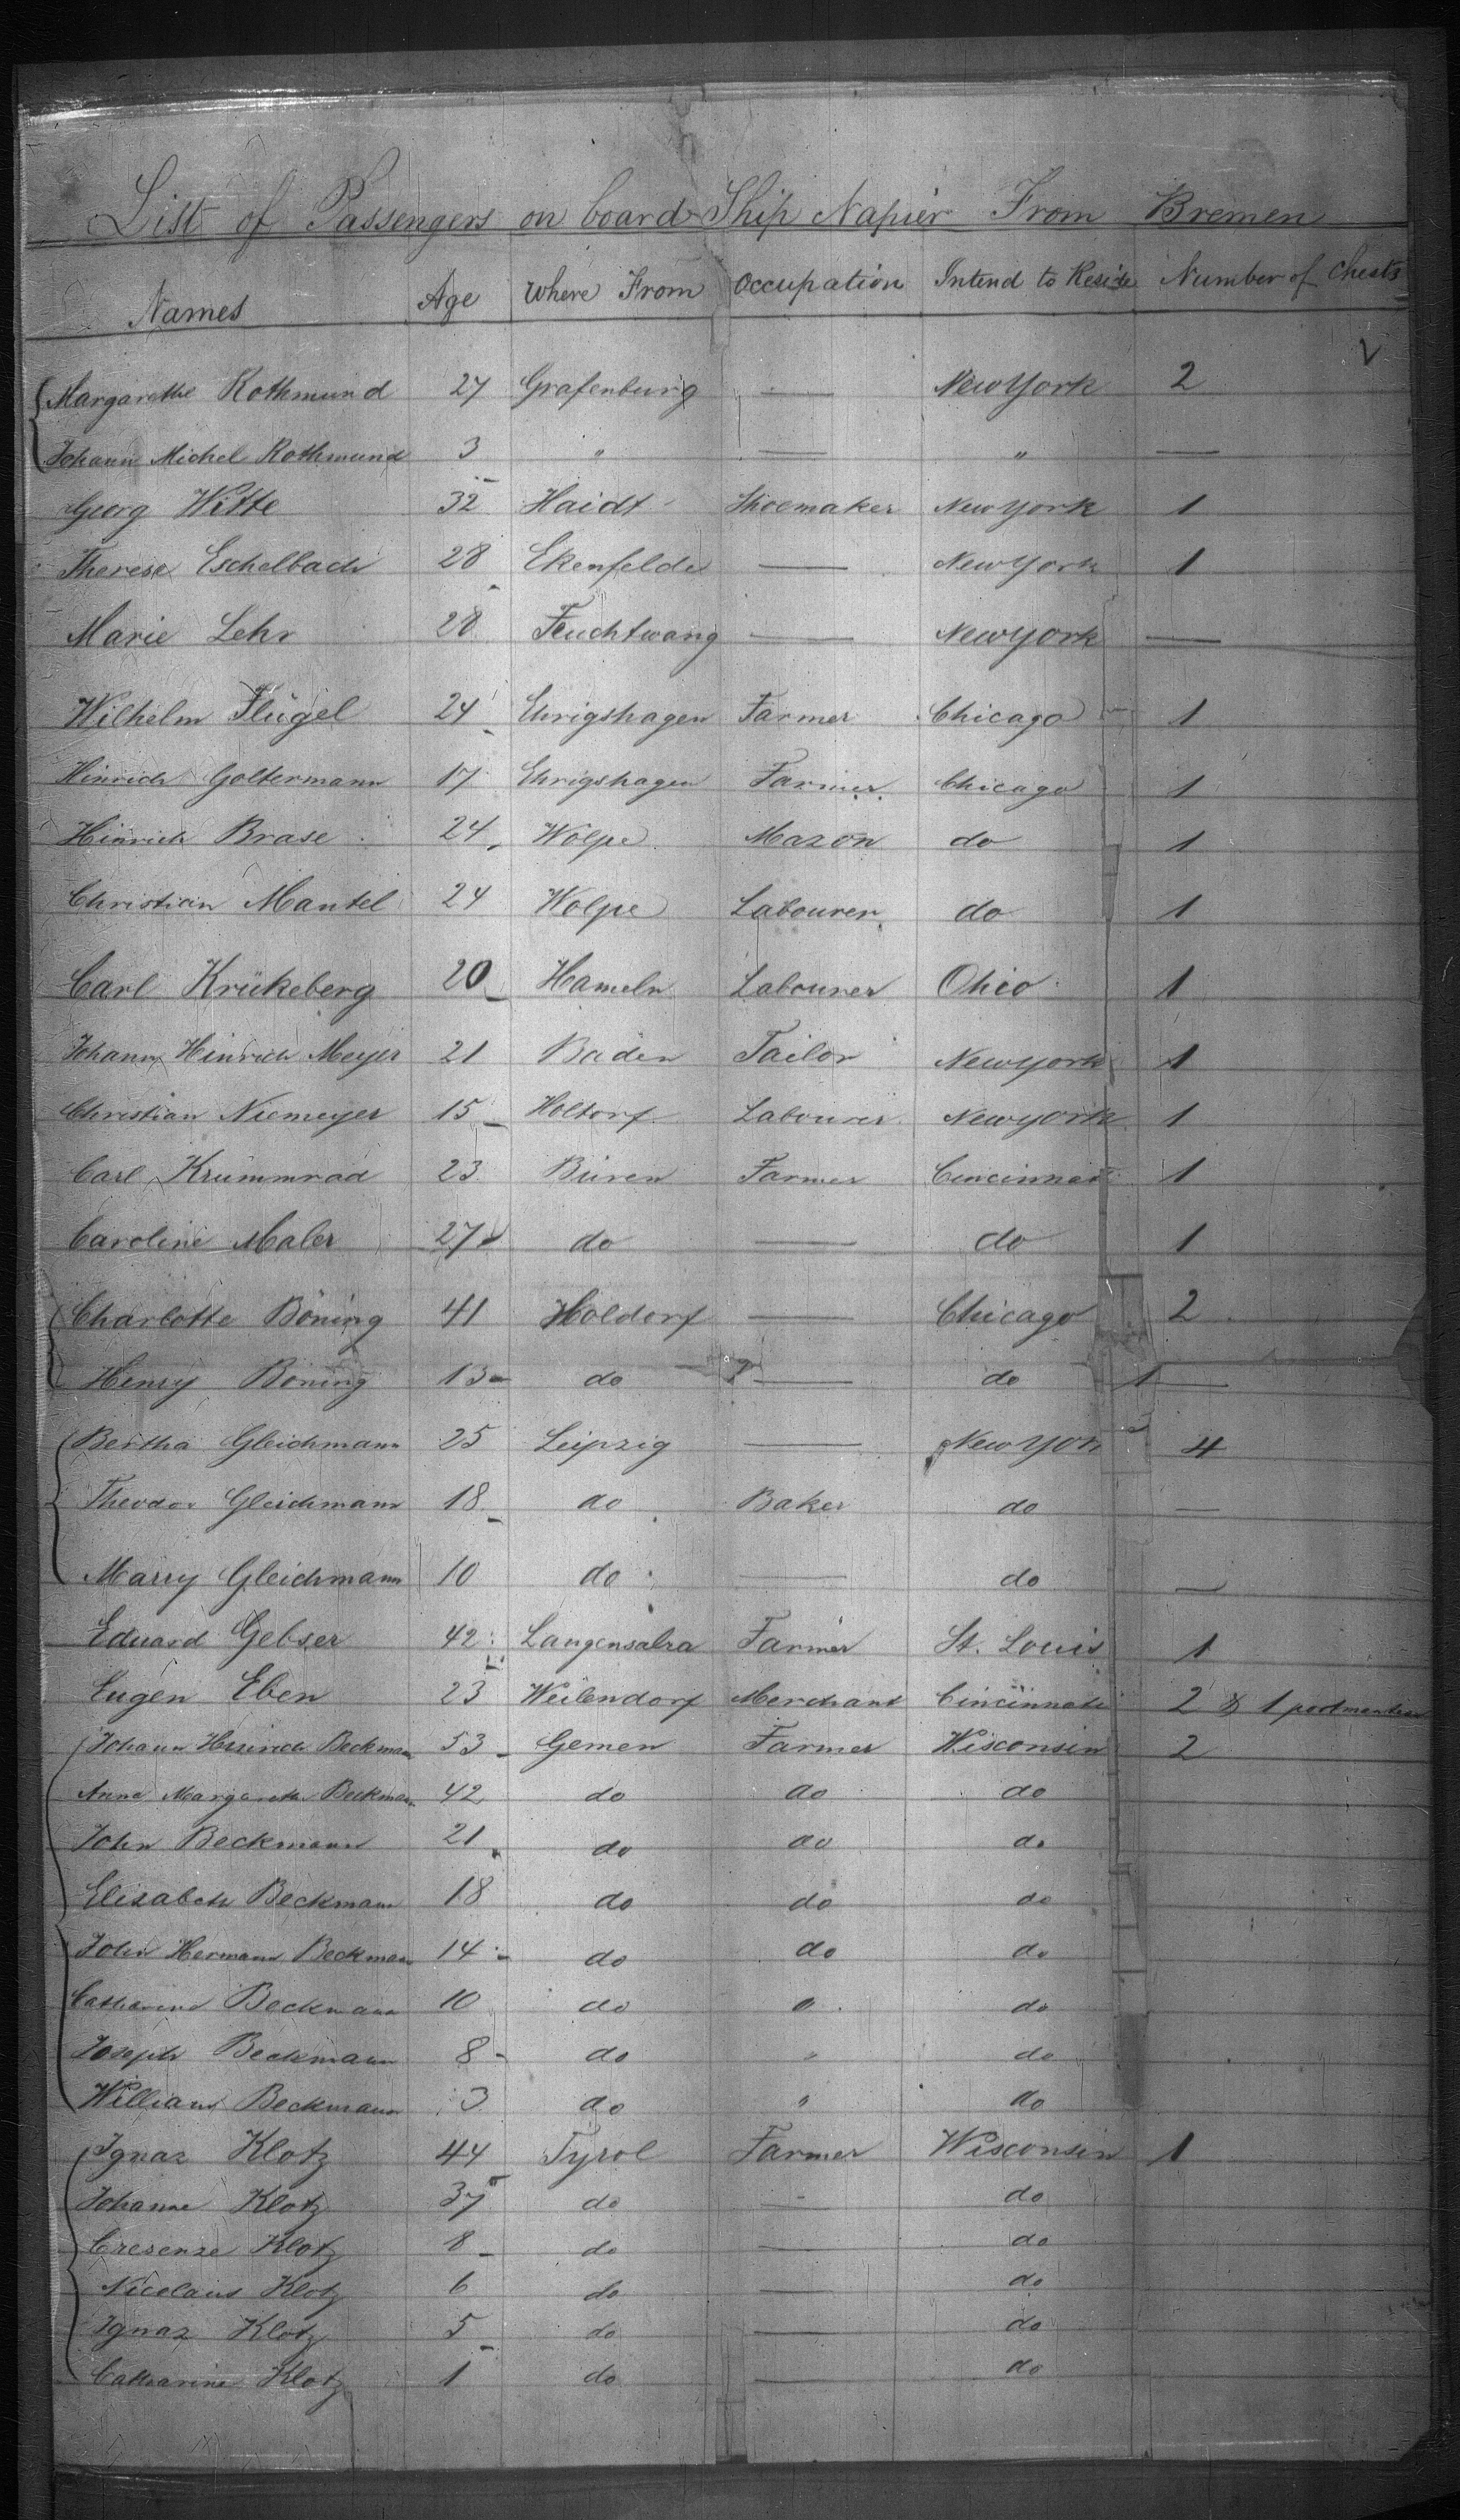 List of Passengers on board Ship Napier From Bremen
Names Age Where From Occupation Intend to Reside Number of Chests
Margarethe Rothmund 27 Grafenburg — New York 2
Johann Michel Rothmund 3 " — " —
Georg Witte 32 Haidt Shoemaker New York 1
Therese Eschelbach 28 Ekenfelde — New York 1
Marie Lehr 28 Feuchtwang — New York —
Wilhelm Flügel 24 Ehrigshagen Farmer Chicago 1
Hinrich Goltermann 17 Ehrigshagen Farmer Chicago 1
Hinrich Brase 24 Wölpe Mazon do 1
Christian Mantel 24 Wolpe Labourer do 1
Carl Krükeberg 20 Hameln Labourer Ohio 1
Johann Hinrich Meyer 21 Baden Tailor New York 1
Christian Niemeyer 15 Holtorf Labourer New York 1
Carl Krummrad 23 Büren Farmer Cincinnati 1
Caroline Maler 27 do — do 1
Charlotte Böning 41 Holdorf — Chicago 2
Henry Böning 13 do — do —
Bertha Gleichmann 25 Leipzig — New York 4
Theodor Gleichmann 18 do Baker do —
Marry Gleichmann 10 do — do —
Eduard Gebser 42 Langensalza Farmer St. Louis 1
Eugen Eben 23 Weilendorf Merchant Cincinnati 2 & 1
Johann Heinrich Beckmann 53 Gemen Farmer Wisconsin 2
Anna Margareth Beckmann 42 do do do
John Beckmann 21 do do do
Elisabeth Beckmann 18 do do do
John Hermann Beckmann 14 do do do
Catharina Beckmann 10 do " do
Joseph Beckmann 8 do " do
William Beckmann 3 do " do
Ignaz Klotz 44 Tyrol Farmer Wisconsin 1
Johanne Klotz 37 do - do
Cresenze Klotz 8 do — do
Nicolaus Klotz 6 do — do
Ignaz Klotz 5 do — do
Catharine Klotz 1 do — do